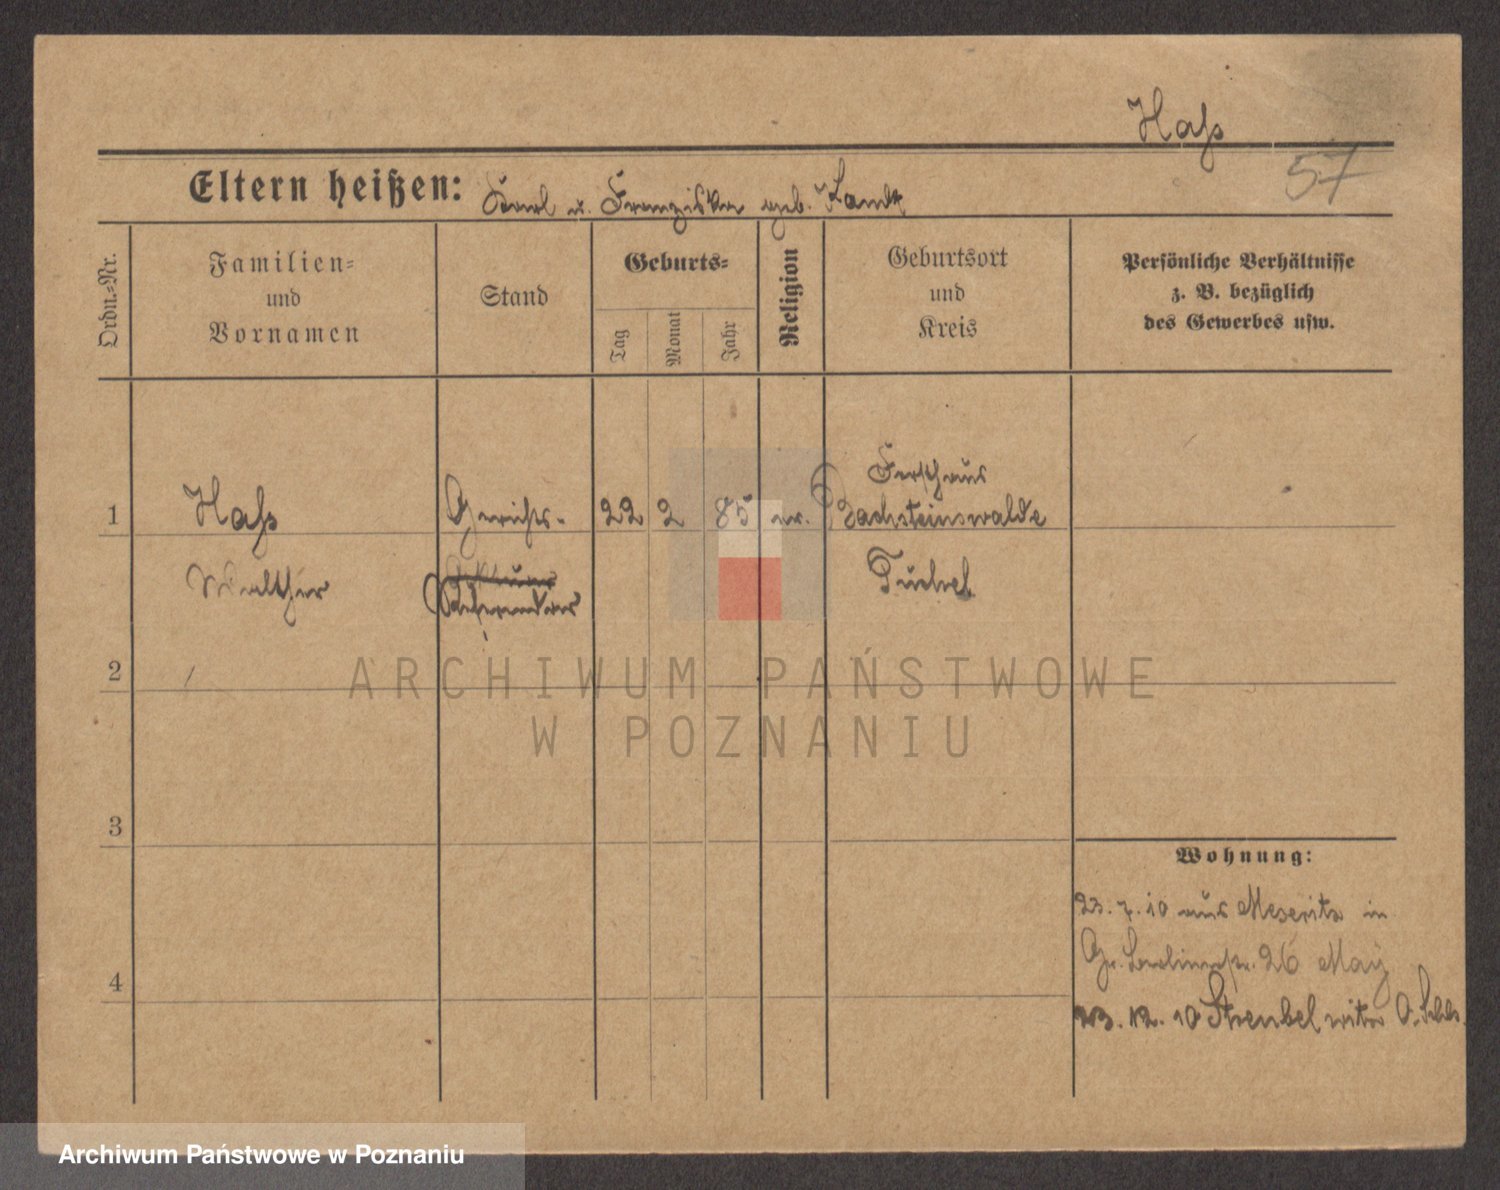 Haß
57
Eltern heißen: Karl u. Franziska geb. Landt
Ordn.-Nr.
Familien-
und
Vornamen
Stand
Geburts-
Tag
Monat
Jahr
Religion
Geburtsort
und
Kreis
Persönliche Verhältnisse
z. B. bezüglich
des Gewerbes usw.
1
Haß
Gerichts-
22
2
85
ev.
Forsthaus
Zachsteinswalde
Walther
Aktuar
Referendar
Tuchel
2
ARCHIWUM PAŃSTWOWE
W POZNANIU
3
Wohnung:
23.7.10 aus Meseritz in
Gr. Berlinerstr. 26 May
4
23.12.10 Streubel
Archiwum Państwowe w Poznaniu